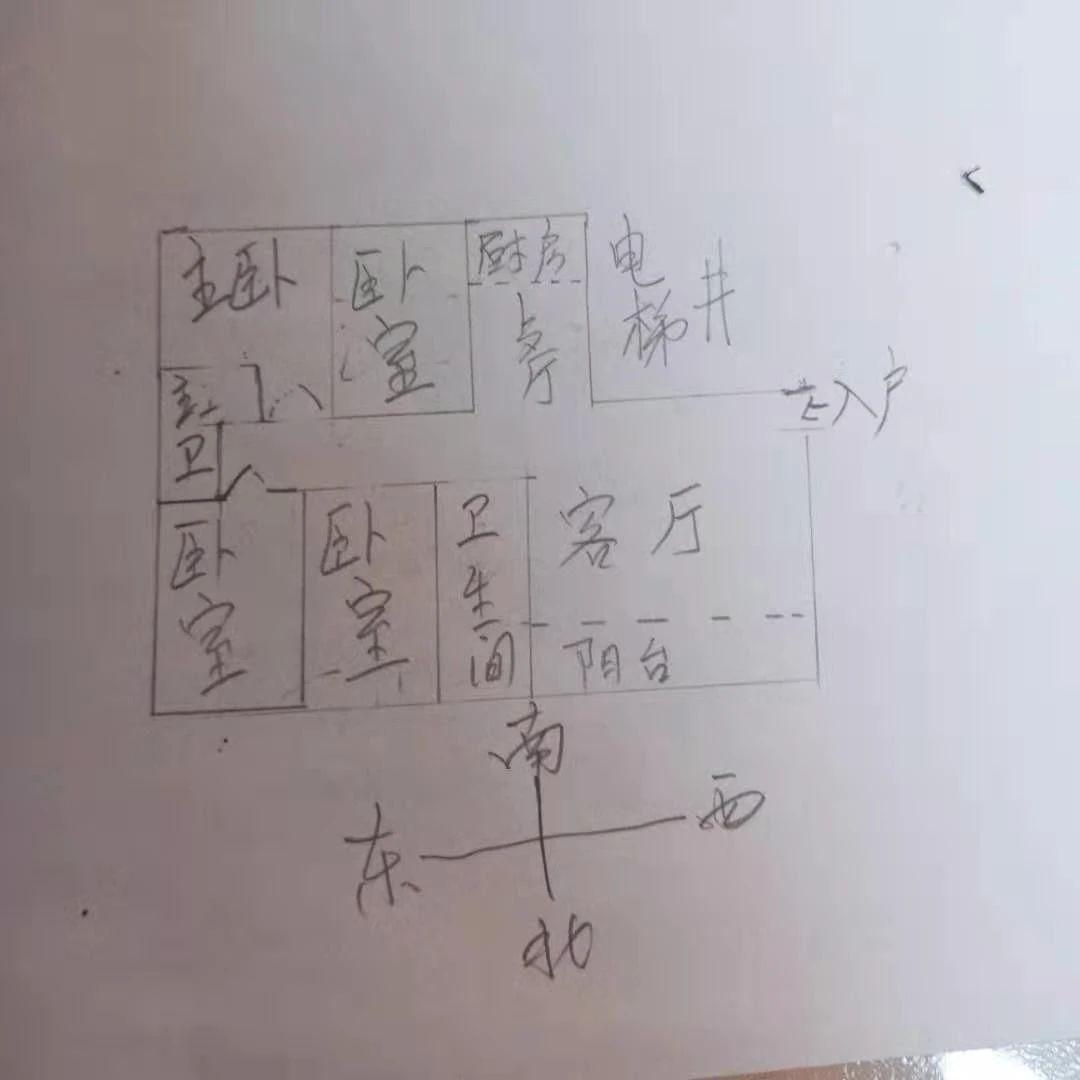 主卧
卧室
厨房
餐厅
电梯井
入户
主卫
卧室
卧室
卫生间
客厅
阳台
南
东
西
北